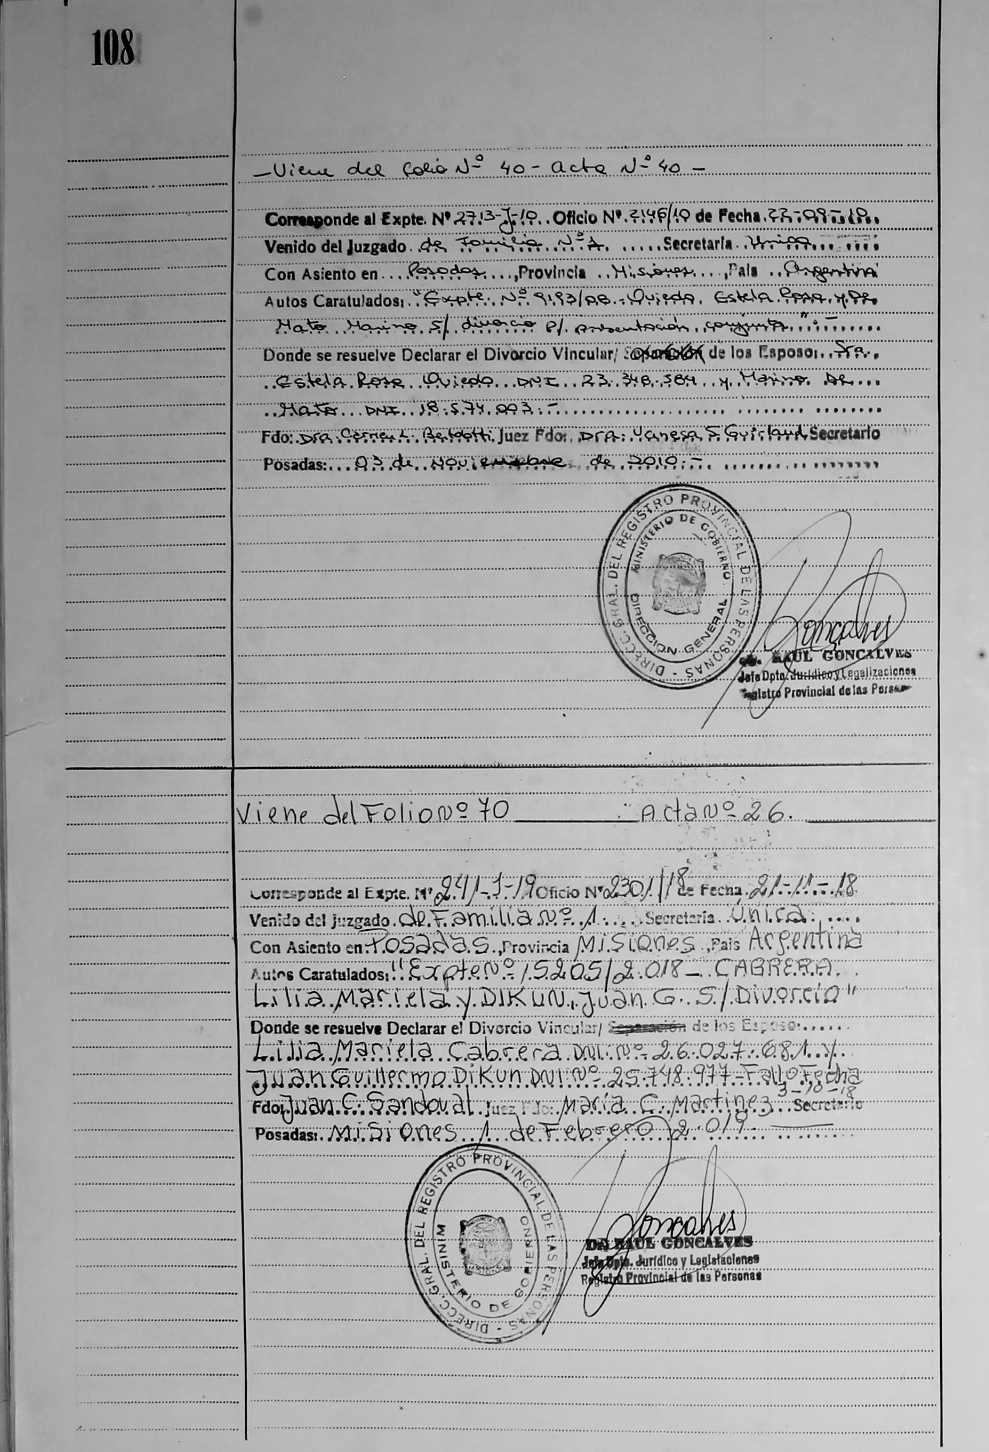 108
- Viene del folio Nº 40 - acta Nº 40 -
Corresponde al Expte. Nº 2713-J-10. Oficio Nº 2146/10 de Fecha 22-09-10.
Venido del Juzgado de Familia Nº 1 Secretaría Unica
Con Asiento en Posadas, Provincia Misiones, País Argentina
Autos Caratulados: "Expte. Nº 9193/08 - Oviedo, Estela Rosa y De
Mato Marino S/ divorcio P/ presentación conjunta". -
Donde se resuelve Declarar el Divorcio Vincular/ Separación de los Esposo: Sra.
Estela Rosa Oviedo DNI 23.348.384 y Marino De
Mato DNI 18.574.003. -
Fdo: Dra. L. Juez Fdo: Dra. Vanesa S. Secretario
Posadas: 03 de Noviembre de 2010. -
DIREC. GRAL. DEL REGISTRO PROVINCIAL DE LAS PERSONAS -
MINISTERIO DE GOBIERNO
DIRECCION GENERAL
Goncalves
RAUL GONCALVES
Jefe Dpto. Jurídico y Legalizaciones
Registro Provincial de las Personas
Viene del Folio Nº 70 Acta Nº 26.
Corresponde al Expte. Nº 241-J-19 Oficio Nº 2301/18 de Fecha 21-11-18
Venido del Juzgado de Familia Nº 1. Secretaría Única.
Con Asiento en Posadas, Provincia Misiones, País Argentina
Autos Caratulados: "Expte Nº 15205/2.018 - CABRERA
Lilia Mariela y DIKUN, Juan G. S/Divorcio"
Donde se resuelve Declarar el Divorcio Vincular/ Separación de los Esposo:
Lilia Mariela Cabrera DNI. Nº 26.027.681 y
Juan Guillermo DiKun DNI Nº 25.748.977 - Fallo Fecha
3-10-18
Fdo: Juan C. Sandoval Juez Fdo: María C. Martinez Secretario
Posadas: Misiones 1 de Febrero 2.019
DIRECC. GRAL. DEL REGISTRO PROVINCIAL DE LAS PERSONAS -
MINISTERIO DE GOBIERNO
Goncalves
DR. RAUL GONCALVES
Jefe Dpto. Jurídico y Legislaciones
Registro Provincial de las Personas